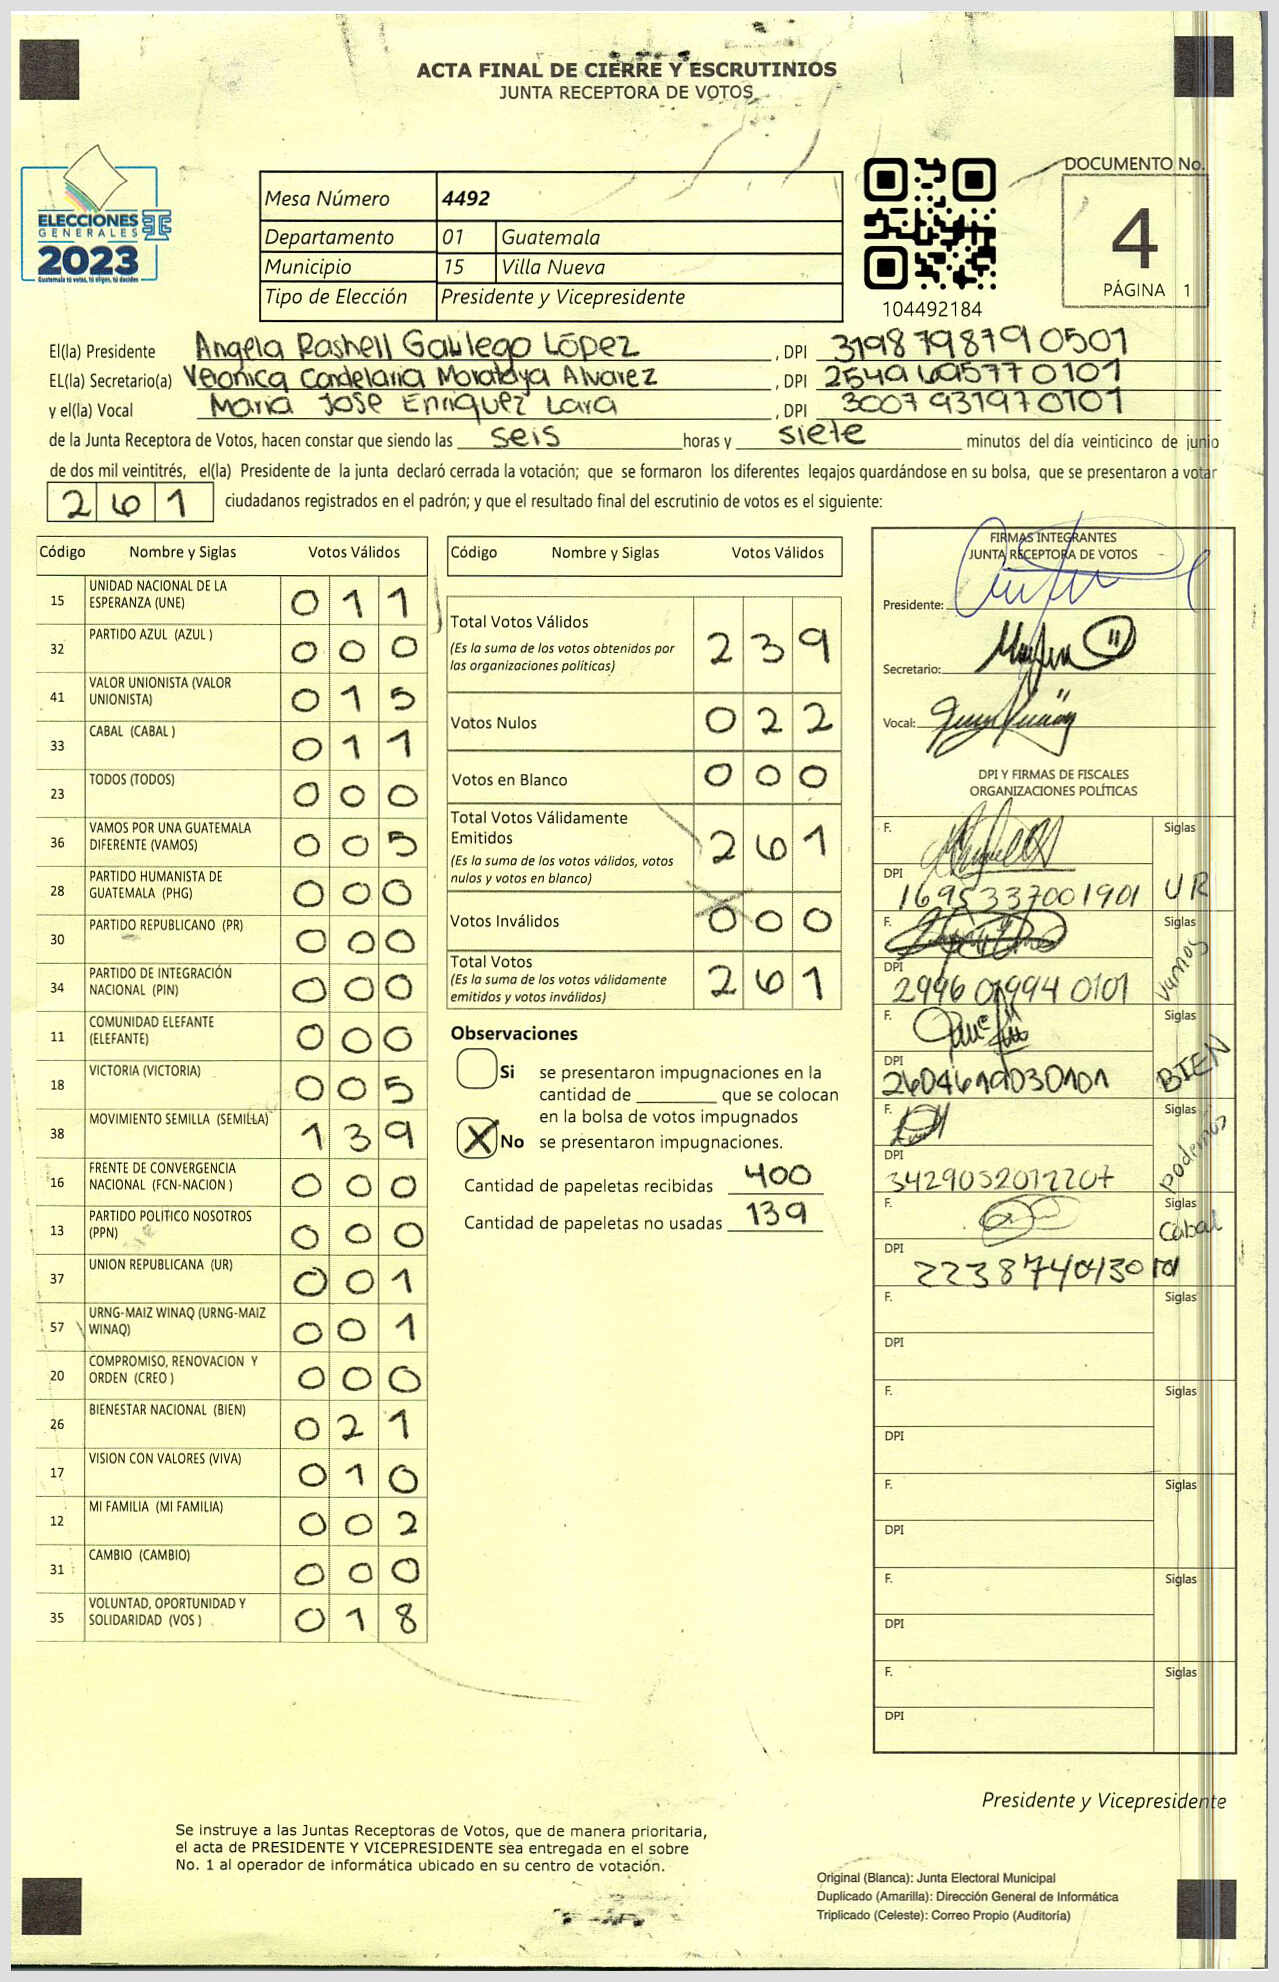 ACTA FINAL DE CIERRE Y ESCRUTINIOS
JUNTA RECEPTORA DE VOTOS
ELECCIONES
GENERALES
2023
Guatemala tú votas, tú eliges, tú decides
Mesa Número 4492
Departamento 01 Guatemala
Municipio 15 Villa Nueva
Tipo de Elección Presidente y Vicepresidente
104492184
DOCUMENTO No.
4
PÁGINA 1
El(la) Presidente Angela Rashell Gallego López , DPI 3198798790501
EL(la) Secretario(a) Veronica Candelaria Morataya Alvarez , DPI 2549695770101
y el(la) Vocal Maria Jose Enriquez Lara , DPI 3007931970101
de la Junta Receptora de Votos, hacen constar que siendo las seis horas y siete minutos del día veinticinco de junio
de dos mil veintitrés, el(la) Presidente de la junta declaró cerrada la votación; que se formaron los diferentes legajos guardándose en su bolsa, que se presentaron a votar
261 ciudadanos registrados en el padrón; y que el resultado final del escrutinio de votos es el siguiente:
Código Nombre y Siglas Votos Válidos
15 UNIDAD NACIONAL DE LA ESPERANZA (UNE) 011
32 PARTIDO AZUL (AZUL ) 000
41 VALOR UNIONISTA (VALOR UNIONISTA) 015
33 CABAL (CABAL ) 011
23 TODOS (TODOS) 000
36 VAMOS POR UNA GUATEMALA DIFERENTE (VAMOS) 005
28 PARTIDO HUMANISTA DE GUATEMALA (PHG) 000
30 PARTIDO REPUBLICANO (PR) 000
34 PARTIDO DE INTEGRACIÓN NACIONAL (PIN) 000
11 COMUNIDAD ELEFANTE (ELEFANTE) 000
18 VICTORIA (VICTORIA) 005
38 MOVIMIENTO SEMILLA (SEMILLA) 139
16 FRENTE DE CONVERGENCIA NACIONAL (FCN-NACION ) 000
13 PARTIDO POLITICO NOSOTROS (PPN) 000
37 UNION REPUBLICANA (UR) 001
57 URNG-MAIZ WINAQ (URNG-MAIZ WINAQ) 001
20 COMPROMISO, RENOVACION Y ORDEN (CREO ) 000
26 BIENESTAR NACIONAL (BIEN) 021
17 VISION CON VALORES (VIVA) 010
12 MI FAMILIA (MI FAMILIA) 002
31 CAMBIO (CAMBIO) 000
35 VOLUNTAD, OPORTUNIDAD Y SOLIDARIDAD (VOS ) 018
Código Nombre y Siglas Votos Válidos
Total Votos Válidos 239
(Es la suma de los votos obtenidos por
las organizaciones políticas)
Votos Nulos 022
Votos en Blanco 000
Total Votos Válidamente
Emitidos 261
(Es la suma de los votos válidos, votos
nulos y votos en blanco)
Votos Inválidos 000
Total Votos 261
(Es la suma de los votos válidamente
emitidos y votos inválidos)
Observaciones
Si se presentaron impugnaciones en la
cantidad de que se colocan
en la bolsa de votos impugnados
X No se presentaron impugnaciones.
Cantidad de papeletas recibidas 400
Cantidad de papeletas no usadas 139
FIRMAS INTEGRANTES
JUNTA RECEPTORA DE VOTOS
Presidente:
Secretario:
Vocal:
DPI Y FIRMAS DE FISCALES
ORGANIZACIONES POLÍTICAS
F. Siglas
DPI 1695337001901 UR
F. Siglas
DPI 2996 01994 0101 Vamos
F. Siglas
DPI BIEN
F. Siglas
DPI 3429052012207 Podemos
F. Siglas
DPI Cabal
F. Siglas
DPI
F. Siglas
DPI
F. Siglas
DPI
F. Siglas
DPI
F. Siglas
DPI
Presidente y Vicepresidente
Se instruye a las Juntas Receptoras de Votos, que de manera prioritaria,
el acta de PRESIDENTE Y VICEPRESIDENTE sea entregada en el sobre
No. 1 al operador de informática ubicado en su centro de votación.
Original (Blanca): Junta Electoral Municipal
Duplicado (Amarilla): Dirección General de Informática
Triplicado (Celeste): Correo Propio (Auditoría)